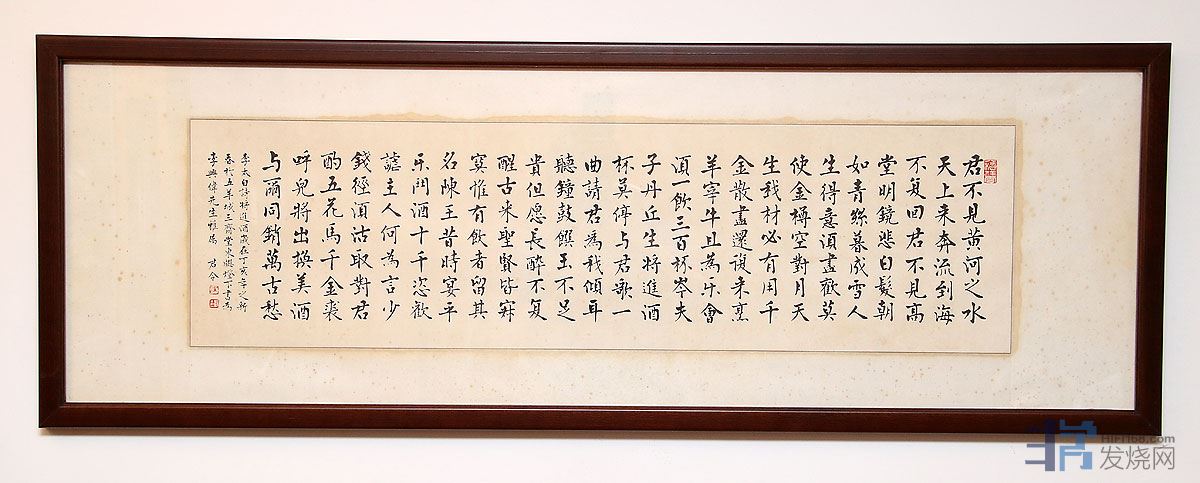 君不見黃河之水
天上来奔流到海
不复回君不見高
堂明鏡悲白髮朝
如青絲暮成雪人
生得意須盡歡莫
使金樽空對月天
生我材必有用千
金散盡還復来烹
羊宰牛且為乐會
須一飲三百杯岑夫
子丹丘生將進酒
杯莫停与君歌一
曲請君為我傾耳
聽鐘鼓饌玉不足
貴但愿長醉不复
醒古来聖賢皆寂
寞惟有飲者留其
名陳王昔時宴平
乐鬥酒十千恣歡
謔主人何為言少
錢徑須沽取對君
酌五花馬千金裘
呼兒將出換美酒
与爾同銷萬古愁
李太白詩將進酒歲在丁亥年之新
春於五羊城三齋堂東燈下書為
李興偉先生雅屬 君令
HIFI168.com
发烧网